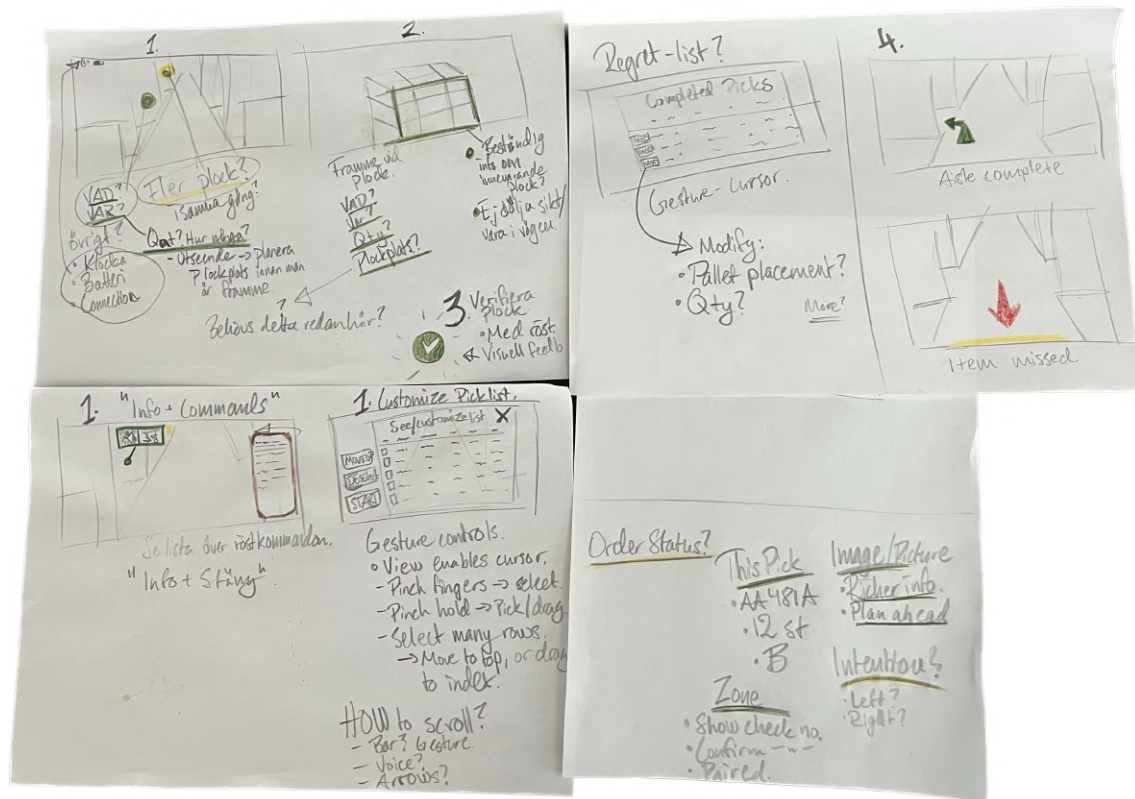 1.
VAD?
VAR?
Fler plock?
i samma gång?
övrigt?
• Klocka
• Batteri
• Connection
Qat? Hur många?
- Utseende → planera
Plockplats innan man
är framme
2.
Framme vid
plock.
VAD?
Var?
Qty?
Plockplats?
• Beständig
info om
innevarande
plock?
• Ej dölja sikt/
vara i vägen.
?
Behövs detta redan här?
3. Verifiera
plock
• Med röst.
Visuell feedb
Regret-list?
Completed Picks
Gesture-cursor.
Modify:
• Pallet placement?
• Qty?
More?
4.
Aisle complete
Item missed
1. "Info + Commands"
Se lista över röstkommandon.
"Info + Stäng".
1. Customize Picklist.
See/customize list X
START
Gesture controls.
• View enables cursor.
- Pinch fingers → select.
- Pinch hold → Pick/drag
- Select many rows.
→ Move to top, or drag
to index.
HOW to scroll?
- Bar? Gesture
- Voice?
- Arrows?
Order Status?
This Pick
• AA481A
• 12 st
• B
Zone
• Show check no.
• Confirm -"-
• Paired.
Image/Picture
• Richer info.
• Plan ahead
Intention?
• Left?
• Right?